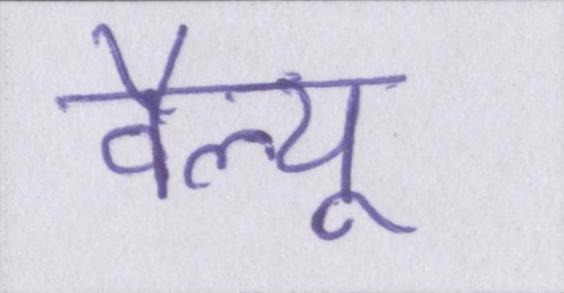 वैल्यू